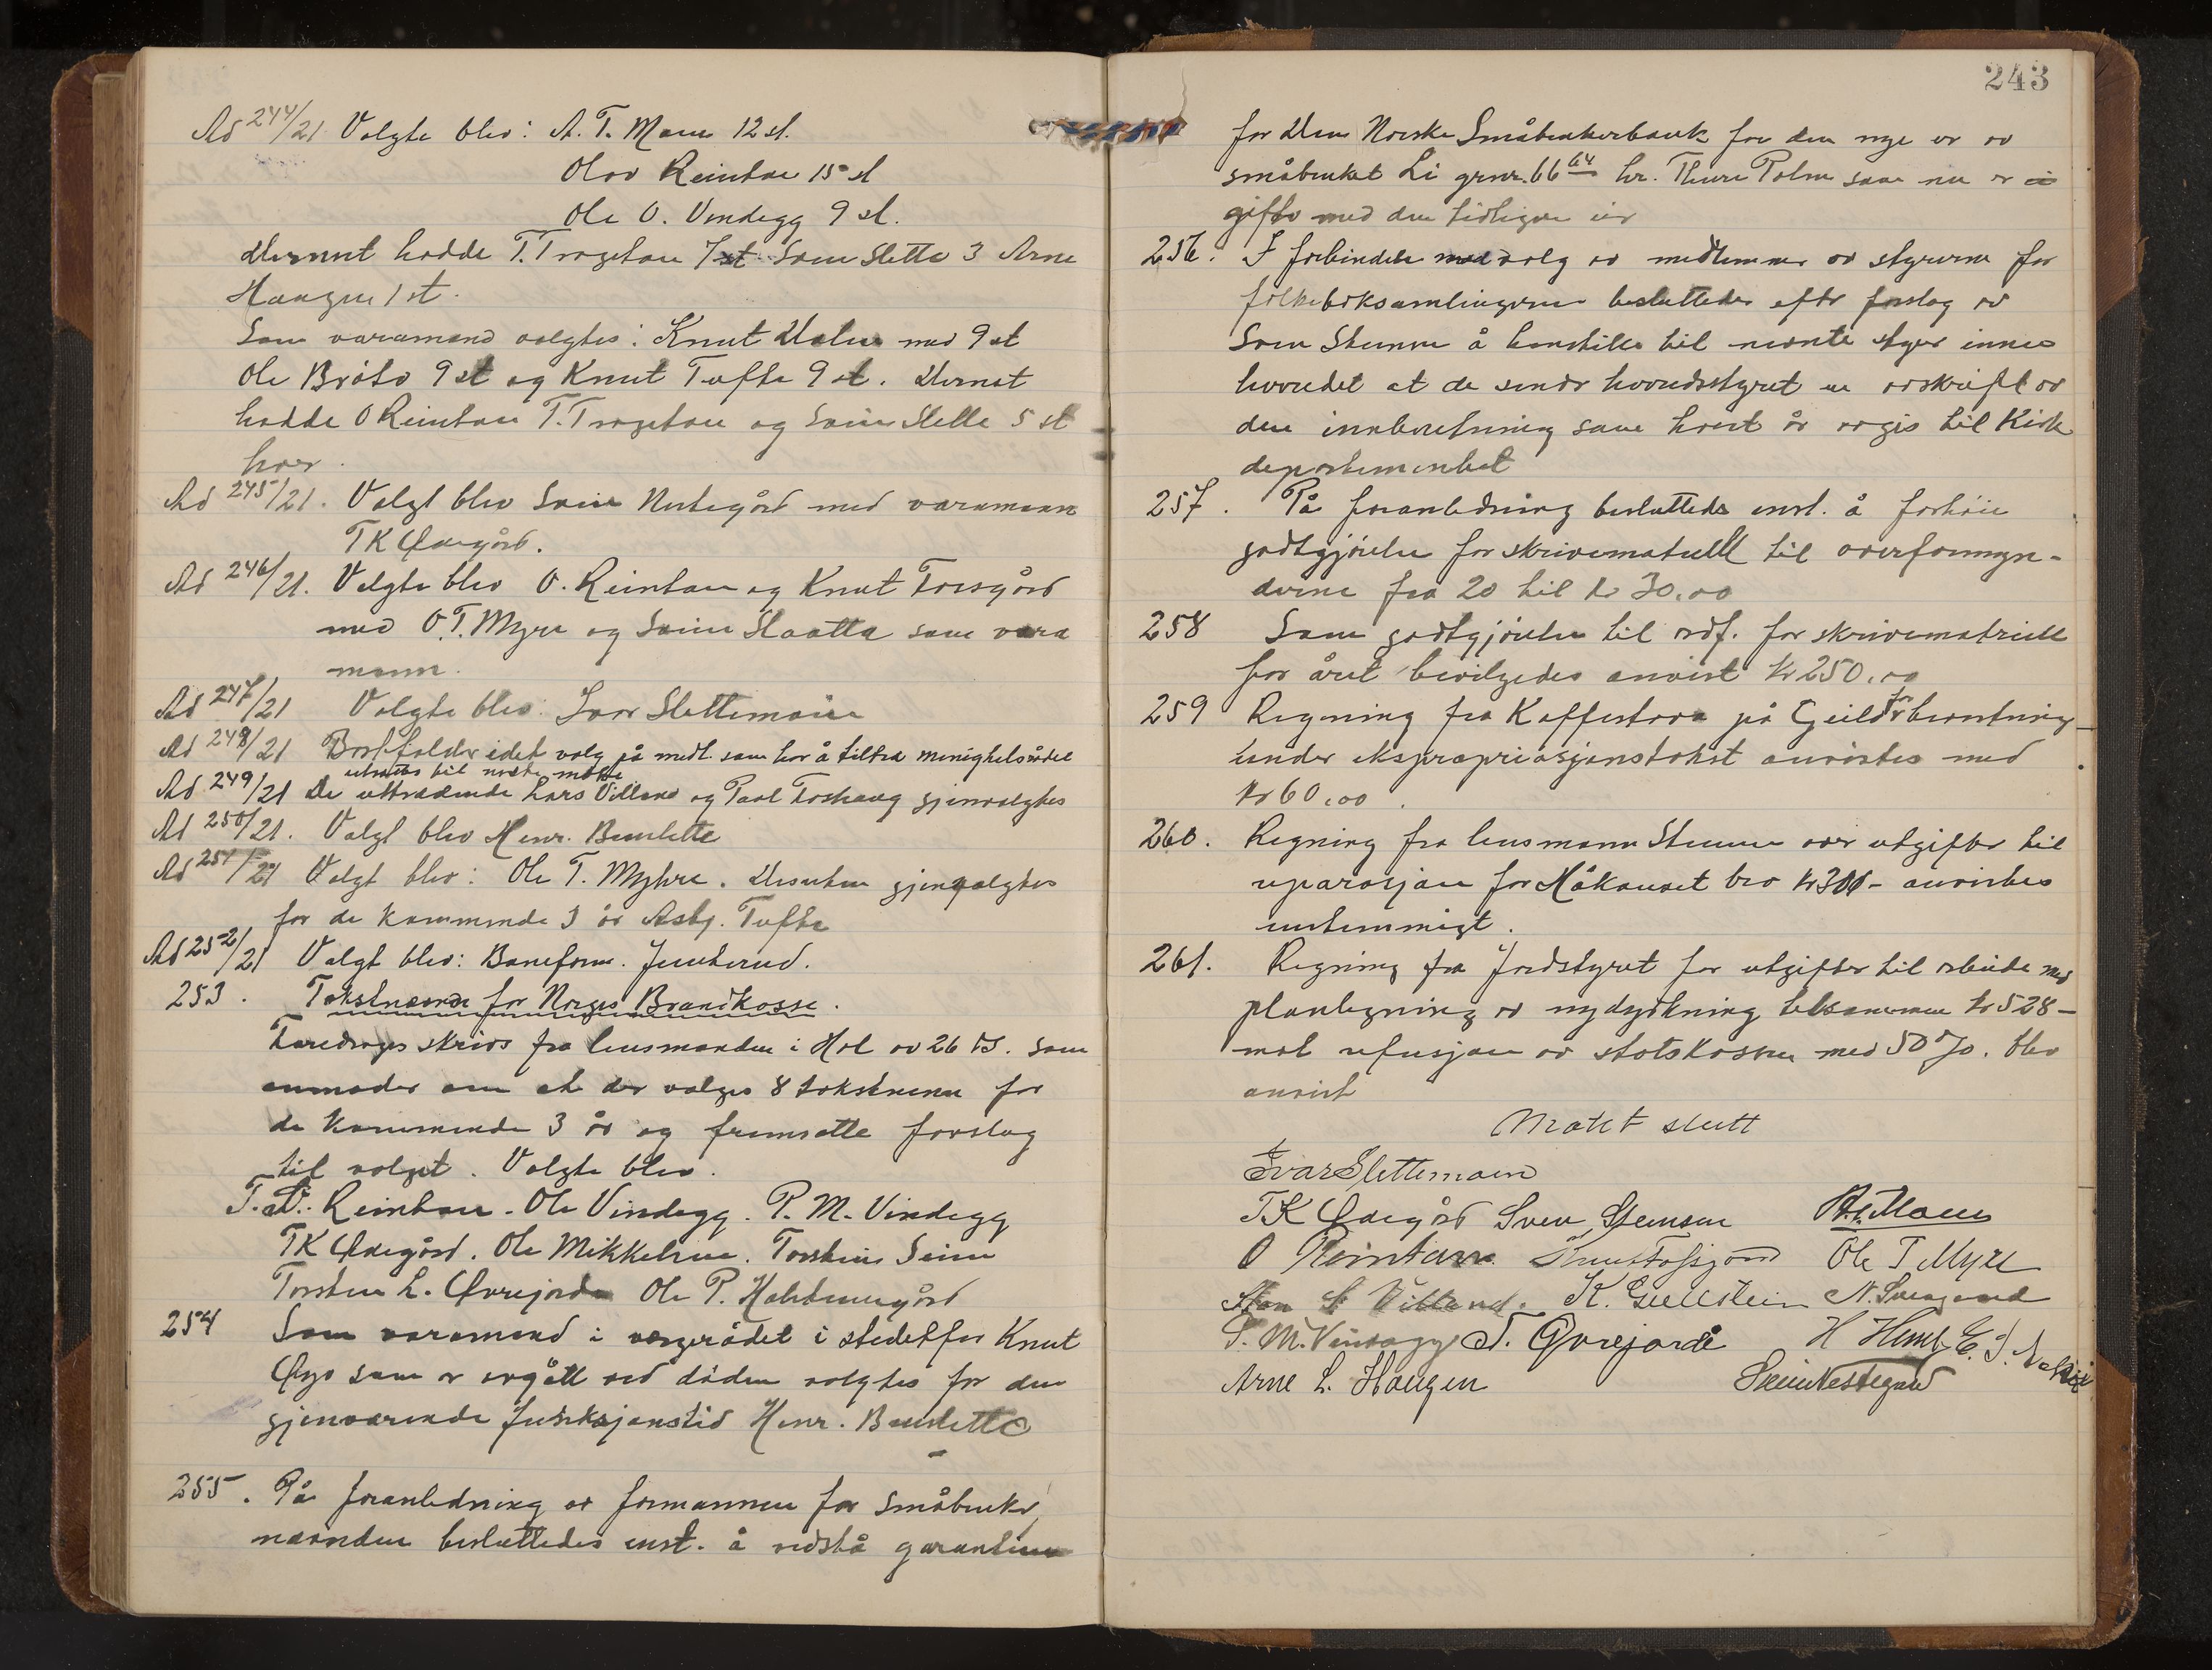 Ad 244/21 Valgte blev: A. T. Moen 12 st.
Olav Reinton 15 st
Ole O. Vindegg 9 st.
Dernæst hadde T. Trageton 7 st Svein Sletto 3 Arne
Haugen 1 st.
Som varamænd valgtes: Knut med 9 st
Ole Bråto 9 st og Knut Tufte 9 st. Dernest
hadde O Reinton T. Trageton og Svein Sletto 5 st
hver.
Ad 245/21. Valgt blev Svein Nestegård med varamann
TK Ødegård.
Ad 246/21. Valgte blev O. Reinton og Knut Forsgård
med O. T. Myre og Svein Slaatta som vara
menn.
Ad 247/21 Valgte blev: Ivar Slettemoen
Ad 248/21 Bortfalder idet valg på medl. som har å tiltræ menighetsrådet
utsættes til næste møte
Ad 249/21 De uttrædende Lars Villand og Paal Toshaug gjenvalgtes
Ad 250/21. Valgt blev Henr. Benslette
Ad 251/21 Valgt blev: Ole T. Myhre. Desuten gjenvalgtes
for de kommende 3 år Asbj. Tufte
Ad 252/21 Valgt blev: Baneform. Junkerud.
253. Takstmenn for Norges Brandkasse.
Foredroges skriv fra lensmanden i Hol av 26 ds. som
anmoder om at der valges 8 takstmenn for
de kommende 3 år og fremsatte forslag
til valget. Valgte blev.
T. A. Reinton. Ole Vindegg. P. M. Vindegg
TK Ødegård. Ole Mikkelsen. Torstein Seim
Torsten L. Øvrejorde Ole P. Holstensgård
254 Som varamend i vergerådet i stedet for Knut
Øyo som er avgått ved døden valgtes for den
gjenværende funksjonstid Henr. Benslette
255. På foranledning av formannen for småbruks
nævnden besluttedes enst. å vedstå garantien
243
for Den Norske Småbrukerbank for den nye eier av
småbruket Li grnr. 66 64 hr. Thure Palm som nu er
gift med den tidligere eier
256. I forbindelse med valg av medlemmer av styrerne for
folkeboksamlingerne besluttedes efter forslag av
Sven Stensen å henstille til nevnte styrer innen
herredet at de sender herredsstyret en avskrift av
den innberetning som hvert år avgis til Kirke
departementet
257. På foranledning besluttedes enst. å forhøie
godtgjørelse for skrivematriell til overformyn-
derne fra 20 til kr 30.00
258 Som godtgjørelse til ordf. for skrivematriell
for året bevilgedes anvist kr 250.00
259 Regning fra Kaffestova på Geilo for bevertning
under ekspropriasjonstakst anvistes med
kr 60.00.
260. Regning fra lensmann Stensen over utgifter til
reparasjon for Håkonset bro kr 300- anvistes
enstemmigt.
261. Regning fra Jordstyret for utgifter til arbeide med
planlegning av nydyrkning tilsammen kr 528-
mot refusjon av statskassen med 50 %. blev
anvist
Møtet slutt
Ivar Slettemoen
TK Ødegård Sven Stensen A. T. Moen
O Reinton Knut Forsgård Ole T Myre
S. Villand. K. Gullstein N. Svengaard
P. M. Vindegg T. Øvrejorde H
Arne L. Haugen Svein Nestegard